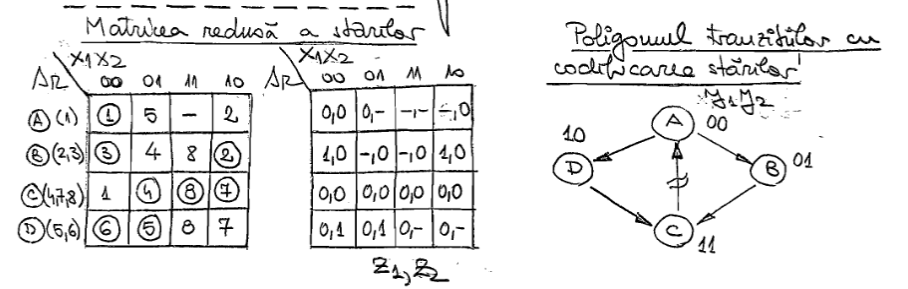 Matricea redusă a stărilor
X1X2
SR 00 01 11 10
A (1) 1 5 - 2
B (2,3) 3 4 8 2
C (4,7,8) 1 4 8 7
D (5,6) 6 5 8 7
X1X2
SR 00 01 11 10
0,0 0,- -,- -,0
1,0 -,0 -,0 1,0
0,0 0,0 0,0 0,0
0,1 0,1 0,- 0,-
Z1, Z2
Poligonul tranzițiilor cu
codificarea stărilor
y1y2
A 00
10 D
B 01
C 11